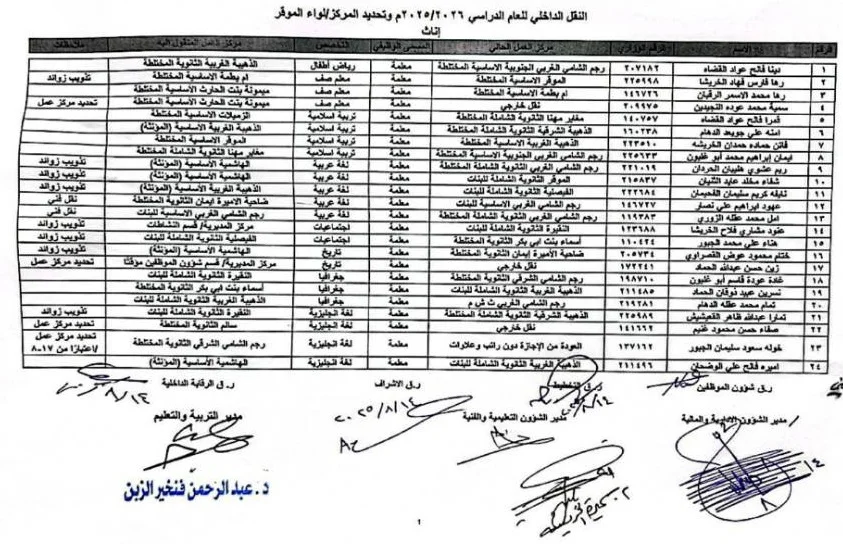 النقل الداخلي للعام الدراسي ٢٠٢٥/٢٠٢٦م وتحديد المركز/لواء الموقر
إناث
الرقم الاسم الرقم الوزاري مركز العمل الحالي المسمى الوظيفي التخصص مركز العمل المنقول اليه ملاحظات
١ دينا فالح عواد القضاه ٢٠٧١٨٢ رجم الشامي الغربي الجنوبية الاساسية المختلطة معلمة رياض أطفال الذهيبة الغربية الثانوية المختلطة
٢ رها فارس فهاد الخريشا ٢٢٥٩٩٨ الموقر الاساسية المختلطة معلمة معلم صف ام بطمة الاساسية المختلطة تذويب زوائد
٣ رها محمد الاسمر الرقبان ١٤٦٧٢٦ ام بطمة الاساسية المختلطة معلمة معلم صف ميمونة بنت الحارث الأساسية المختلطة
٤ سمية محمد عوده النجيدين ٢٠٩٩٧٥ نقل خارجي معلمة معلم صف ميمونة بنت الحارث الأساسية المختلطة تحديد مركز عمل
٥ قمرا فالح عواد القضاه ١٤٠٧٥٧ مغاير مهنا الثانوية الشاملة المختلطة معلمة تربية اسلامية الزميلات الاساسية المختلطة
٦ امنه علي جويعد الدهام ١٦٠٢٣٨ الذهيبة الشرقية الثانوية المختلطة معلمة تربية اسلامية الذهيبة الغربية الأساسية (المؤنثة)
٧ فاتن حماده حمدان الخريشه ٢٢٣٥١٠ الذهيبة الغربية الاساسية معلمة تربية اسلامية الموقر الاساسية المختلطة
٨ ايمان إبراهيم محمد أبو غليون ٢٢٥٦٣٣ رجم الشامي الغربي الجنوبية الاساسية المختلطة معلمة تربية اسلامية مغاير مهنا الثانوية الشاملة المختلطة تذويب زوائد
٩ ريم عشوي طبيان الحردان ٢٢١٠١٩ رجم الشامي الغربي الثانوية الشاملة للبنات معلمة لغة عربية الهاشمية الأساسية (المؤنثة) تذويب زوائد
١٠ شفاء مخلد عايد الثنيان ٢١٥٨٣٧ الموقر الثانوية الشاملة للبنات معلمة لغة عربية الهاشمية الأساسية (المؤنثة) تذويب زوائد
١١ نايله كريم سليمان الفحيمان ٢٢٢٦٨٤ الفيصلية الثانوية الشاملة للبنات معلمة لغة عربية الذهيبة الغربية الأساسية (المؤنثة) تذويب زوائد
١٢ عهود ابراهيم علي نصار ١٤٦٧٢٧ رجم الشامي الغربي الاساسية للبنات معلمة لغة عربية ضاحية الاميرة ايمان الثانوية المختلطة نقل فني
١٣ امل محمد عقله الزوري ١١٩٣٨٣ رجم الشامي الغربي الثانوية الشاملة للبنات معلمة لغة عربية رجم الشامي الغربي الاساسية للبنات نقل فني
١٤ عنود مشاري فلاح الخريشا ١٢٣٦٨٨ النقيرة الثانوية الشاملة للبنات معلمة اجتماعيات مركز المديرية/ قسم النشاطات تذويب زوائد
١٥ هناء علي محمد الجبور ١١٠٤٢٤ أسماء بنت ابي بكر الثانوية المختلطة معلمة اجتماعيات الفيصلية الثانوية الشاملة للبنات تذويب زوائد
١٦ ختام محمود عوض القصراوي ٢٠٥٧٣٤ ضاحية الأميرة إيمان الثانوية المختلطة معلمة تاريخ الهاشمية الأساسية (المؤنثة) تذويب زوائد
١٧ زين حسن عبدالله الحماد ١٧٢٢٤١ نقل خارجي معلمة تاريخ مركز المديرية/ قسم شؤون الموظفين مؤقتا تحديد مركز عمل
١٨ غادة عودة قاسم أبو غليون ١٩٨٧١٠ رجم الشامي الشرقي الثانوية المختلطة معلمة جغرافيا النقيرة الثانوية الشاملة للبنات
١٩ نسرين عبيد ذوقان الحماد ٢١١٤٨٥ الذهيبة الغربية الثانوية الشاملة للبنات معلمة جغرافيا أسماء بنت ابي بكر الثانوية المختلطة
٢٠ تمام محمد عقله الدهام ٢١٩٢٨١ رجم الشامي الغربي ث ش م معلمة جغرافيا الذهيبة الغربية الثانوية الشاملة للبنات
٢١ تمارا عبدالله ظاهر الفعيشيش ٢٢٥٩٨٩ الذهيبة الشرقية الثانوية الشاملة المختلطة معلمة لغة انجليزية النقيرة الثانوية الشاملة للبنات تذويب زوائد
٢٢ صفاء حسن محمود غنيم ١٤١٦٦٢ نقل خارجي معلمة لغة انجليزية سالم الثانوية المختلطة تحديد مركز عمل
٢٣ خوله سعود سليمان الجبور ١٣٧١٦٢ العودة من الإجازة دون راتب وعلاوات معلمة لغة انجليزية رجم الشامي الشرقي الثانوية المختلطة تحديد مركز عمل
/اعتبارًا من ١٧-٨
٢٤ اميره فالح علي الوضحان ٢١١٤٩٦ الذهيبة الغربية الثانوية الشاملة للبنات معلمة لغة انجليزية الهاشمية الأساسية (المؤنثة)
ر.ق شؤون الموظفين ر.ق التخطيط ر.ق الاشراف ر.ق الرقابة الداخلية
٨/١٤ ٢٠٢٥/٨/١٤ ٨/١٤
مدير الشؤون الادارية والمالية مدير الشؤون التعليمية والفنية مدير التربية والتعليم
د. عبد الرحمن فنخير الزبن
١